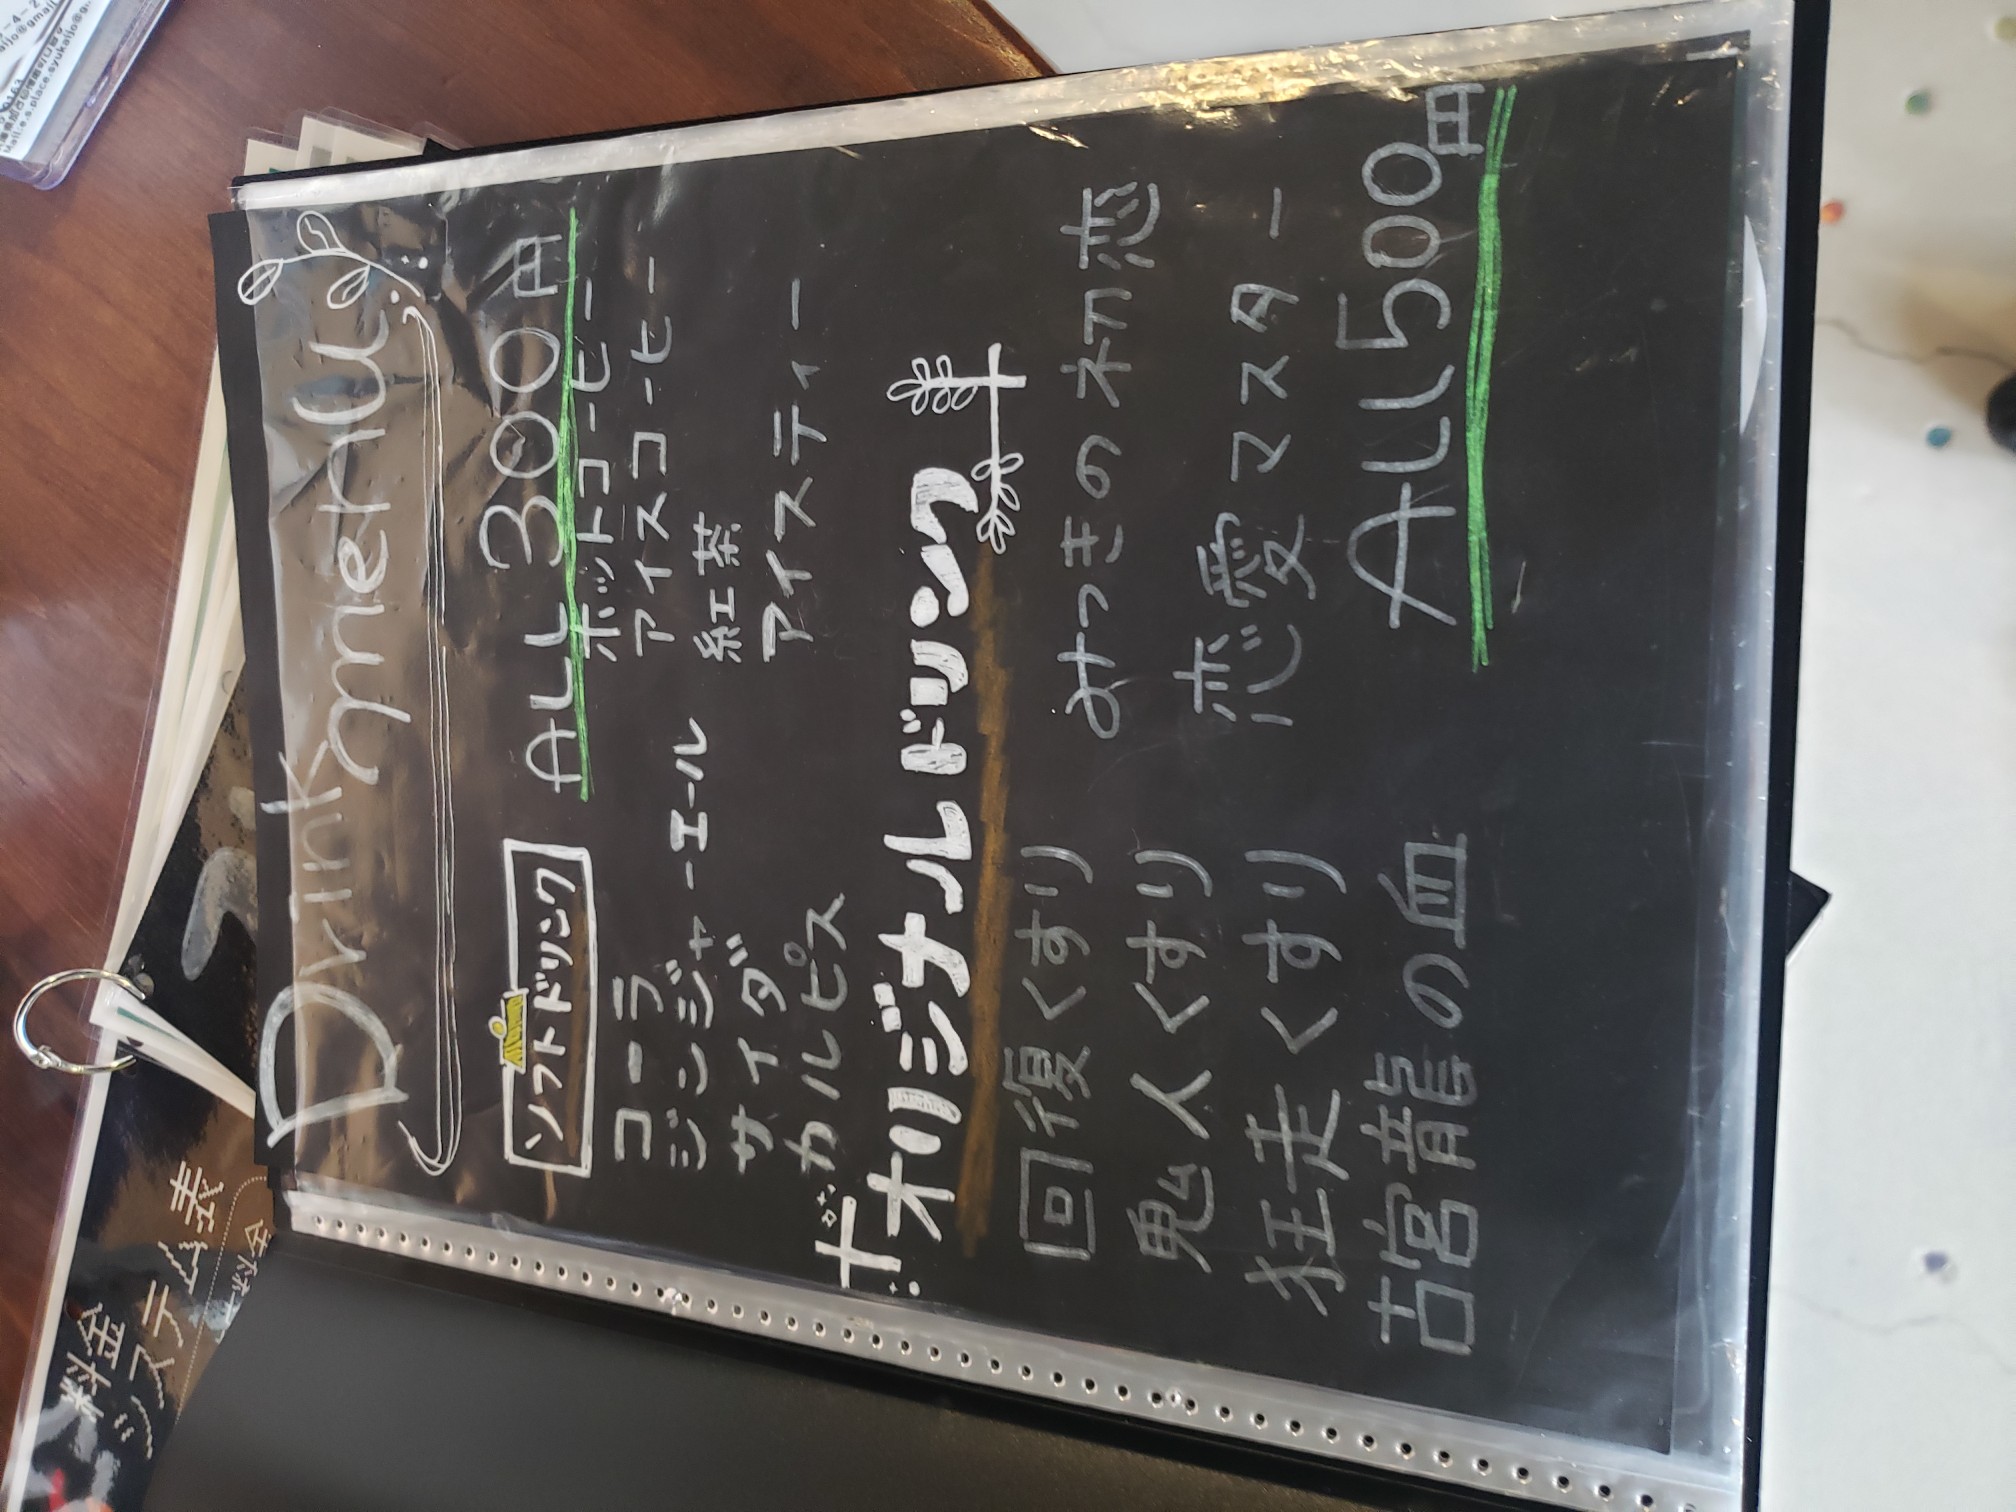 Drink menu
ソフトドリンク ALL 300円
コーラ ホットコーヒー
ジンジャーエール アイスコーヒー
サイダ 紅茶
カルピス アイスティー
オリジナルドリンク
回復くすり みつきの初恋
鬼人くすり 恋愛マスター
狂走くすり ALL 500円
古宮龍の血
料金
システム表